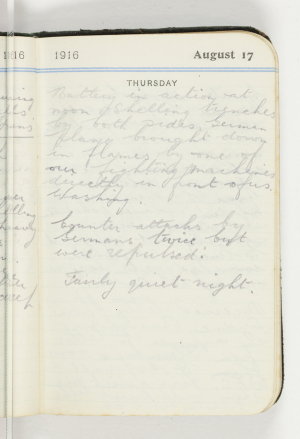 916
1916
August 17
THURSDAY
in action at
noon Shelling trenches
by both sides. German
plane brought down
in flames by one of
our fighting machines
directly in front of us.
Washing.
Counter attacks by
Germans, twice but
were repulsed.
Fairly quiet night.